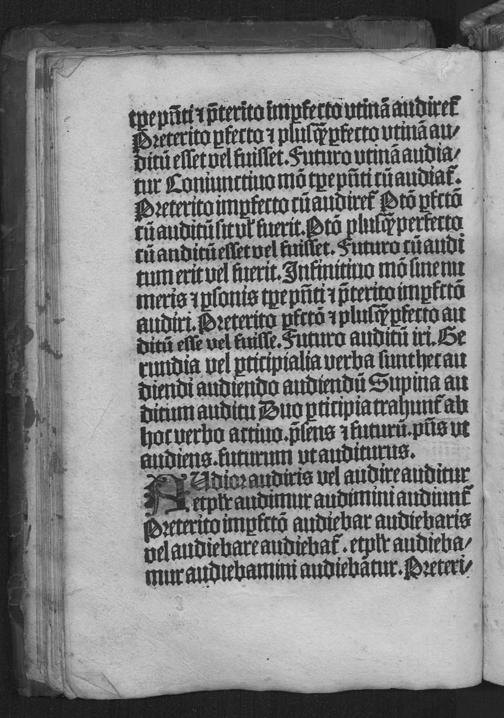 tꝑe pñti ⁊ p̃terito imꝑfecto vtinã audiret᷑
Preterito ꝑfecto ⁊ plusq̃ꝑfecto vtinã au/
ditũ esset vel fuisset. Futuro vtinã audia/
tur Coniunctiuo mõ tꝑe pñti cũ audiat᷑.
Preterito imꝑfecto cũ audiret᷑ Ptõ ꝑfctõ
cũ auditũ sit vl̕ fuerit. Ptõ plusq̃ perfecto
cũ auditũ esset vel fuisset. Futuro cũ audi
tum erit vel fuerit. Infinitiuo mõ sine nu
meris ⁊ ꝑsonis tꝑe pñti ⁊ p̃terito imꝑfctõ
audiri. Preterito ꝑfctõ ⁊ plusq̃ꝑfecto au
ditũ esse vel fuisse. Futuro auditũ iri. Ge
rundia vel ꝑticipialia verba sunt hec au
diendi audiendo audiendũ Supina au
ditum auditu Duo ꝑticipia trahunt᷑ ab
hoc verbo actiuo. p̃sens ⁊ futurũ. pñs vt
audiens. futurum vt auditurus.
AUdior audiris vel audire auditur
et pl̕r audimur audimini audiunt᷑
Preterito imꝑfctõ audiebar audiebaris
vel audiebare audiebat᷑. et pl̕r audieba/
mur audiebamini audiebãtur. Preteri/